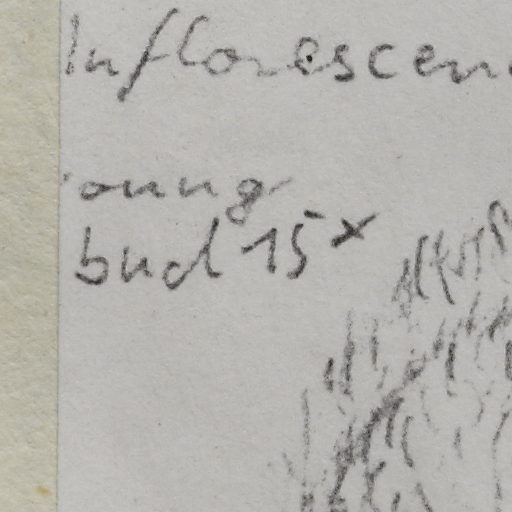 Inflorescen
oung
bud 15x